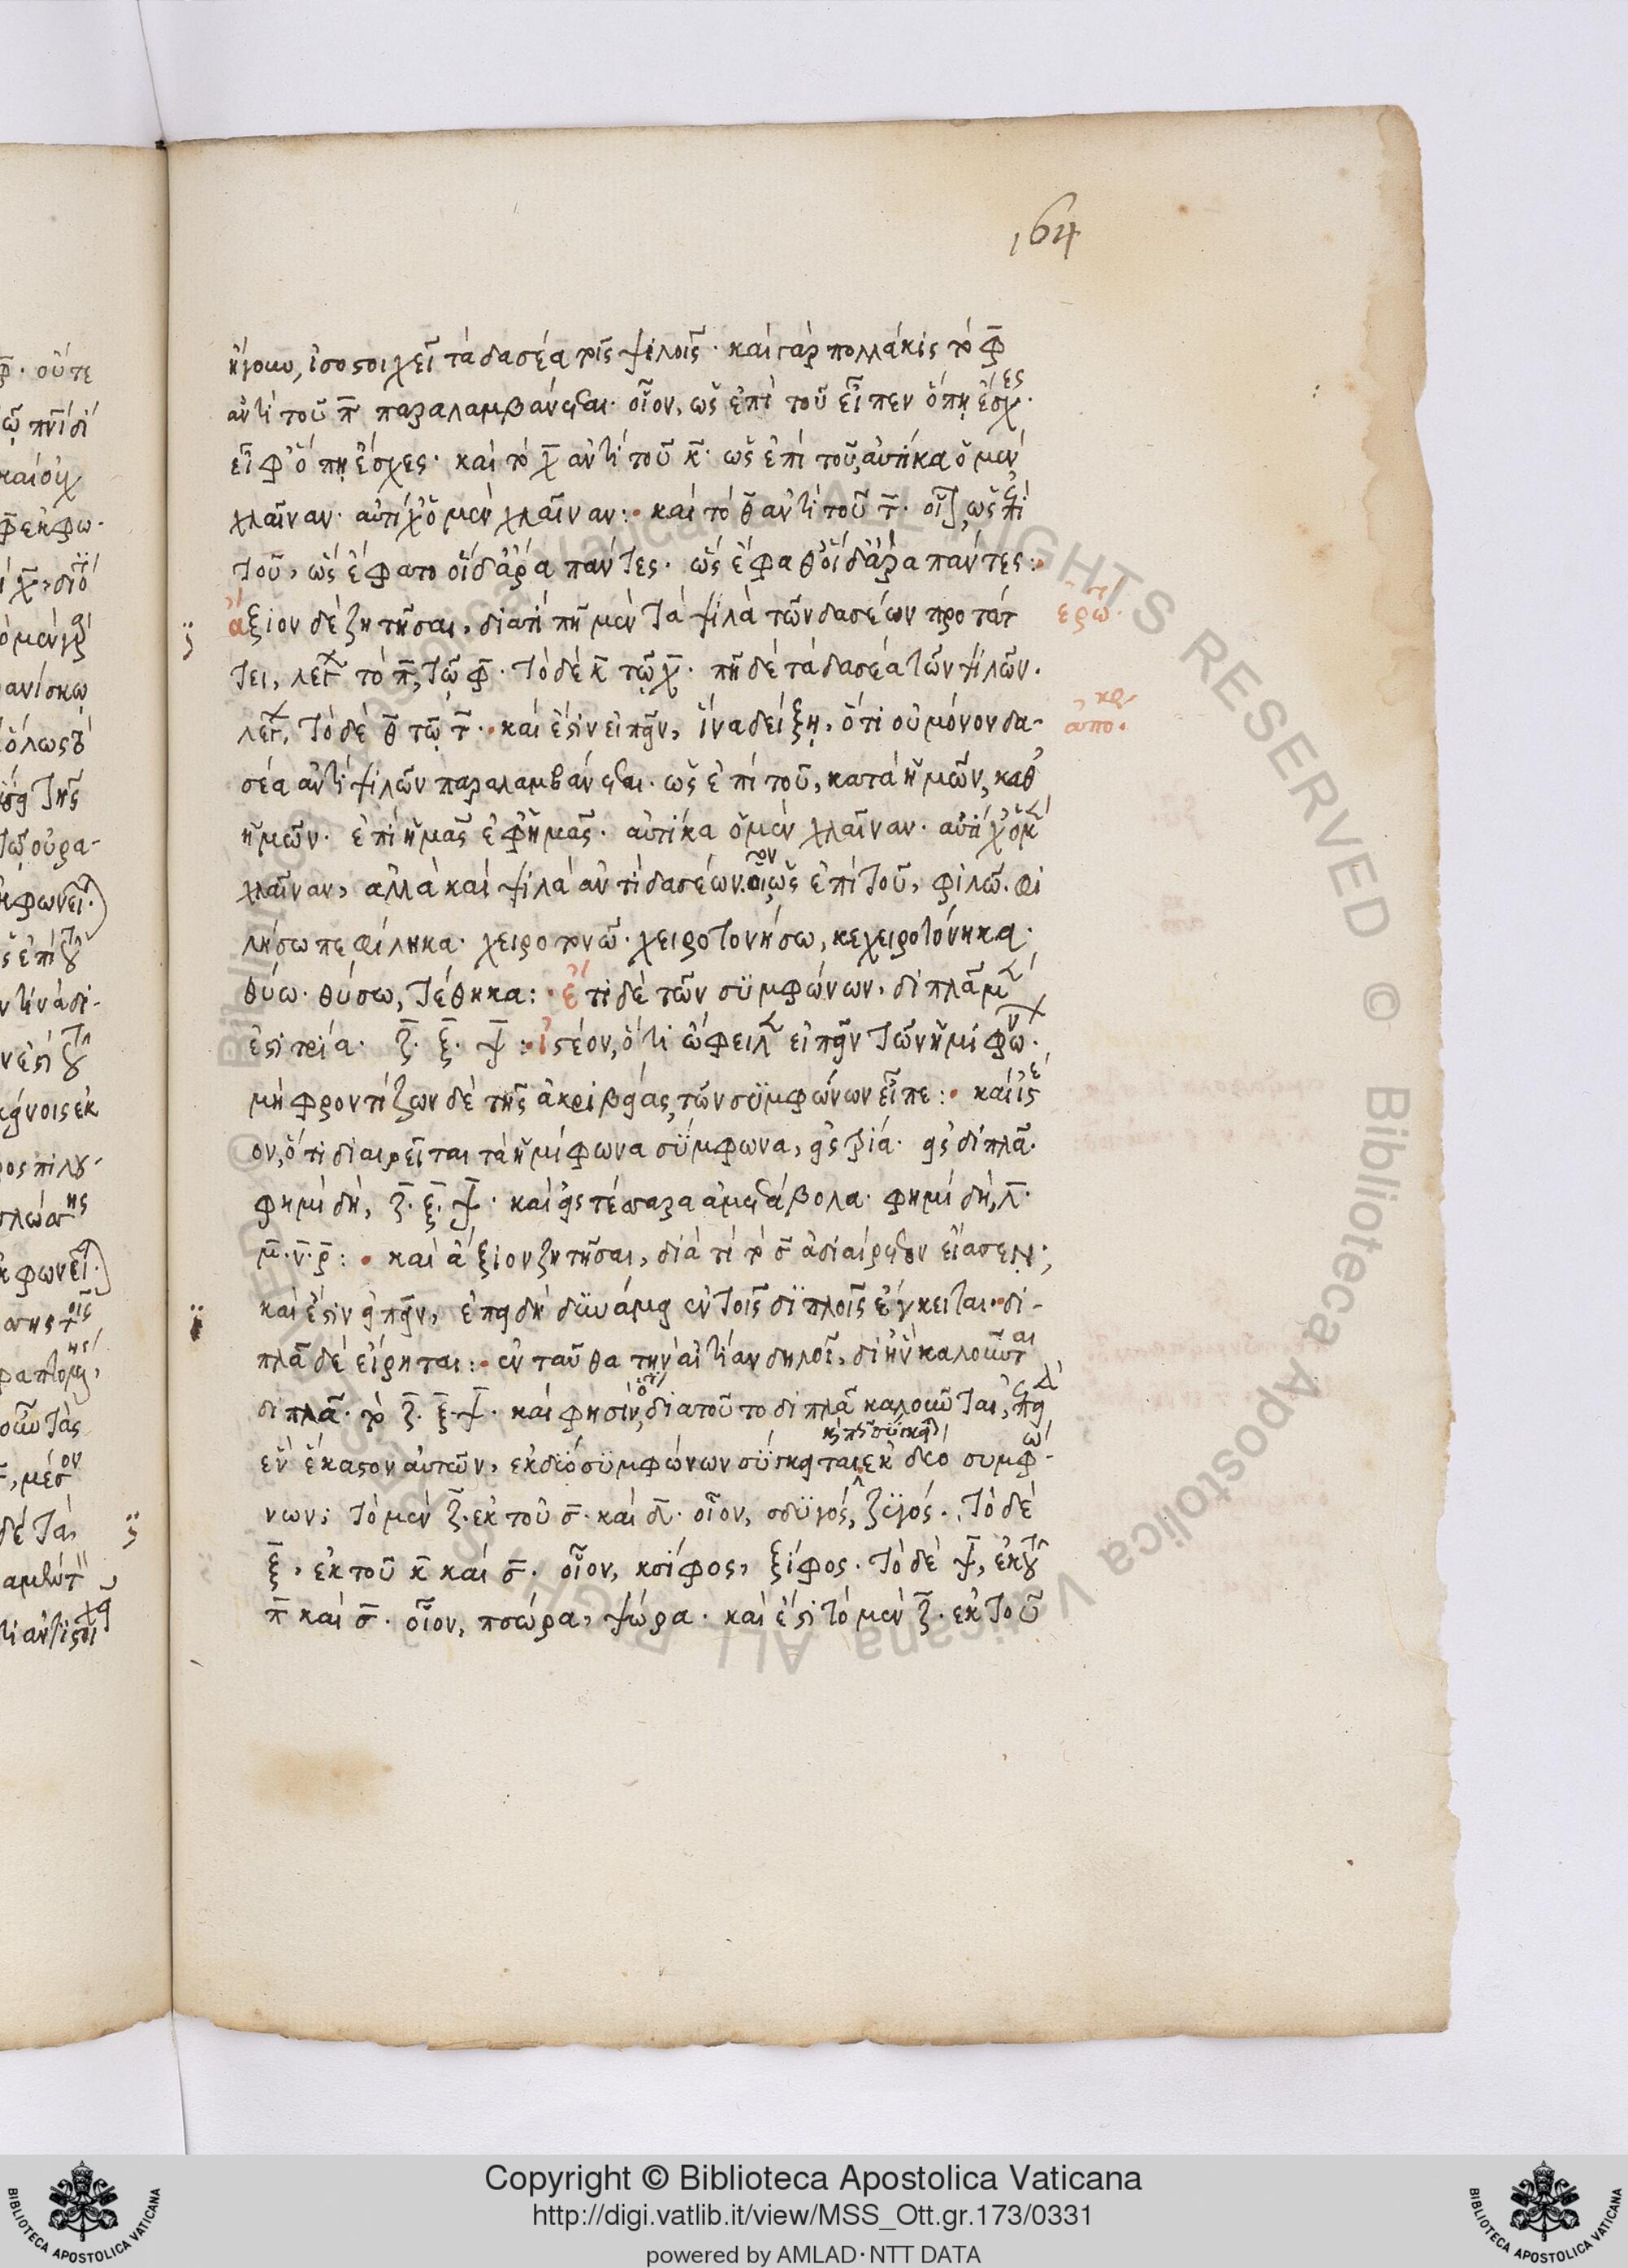 164
ἤγουν, ἰσοστοιχεῖ τὰ δασέα τοῖς ψιλοῖς· καὶ γὰρ πολλάκις τὸ φ̄
ἀντὶ τοῦ π̄ παραλαμβάνεται· οἷον, ὡς ἐπὶ τοῦ εἶπεν ὅπη ἔσχες·
εἶφ' ὅπη ἔσχες· καὶ τὸ χ̄ ἀντὶ τοῦ κ̄· ὡς ἐπὶ τοῦ, αὐτίκα ὃ μὲν
χλαῖναν· αὐτίχ' ὃ μὲν χλαῖναν: καὶ τὸ θ̄ ἀντὶ τοῦ τ̄· οἷον, ὡς ἐπὶ
τοῦ, ὣς ἔφατο οἳ δ' ἄρα πάντες· ὣς ἔφαθ' οἳ δ' ἄρα πάντες:
ἄξιον δὲ ζητῆσαι, διατί πῆ μὲν τὰ ψιλὰ τῶν δασέων προτάτ
ἐρώτ·
τει, λέγω τὸ π̄, τῷ φ̄· τὸ δὲ κ̄ τῷ χ̄· πῆ δὲ τὰ δασέα τῶν ψιλῶν·
λέγω, τὸ δὲ θ̄ τῷ τ̄· καὶ ἔστιν εἰπεῖν, ἵνα δείξῃ, ὅτι οὐ μόνον δα-
ἀπόκρ·
σέα ἀντὶ ψιλῶν παραλαμβάνεται· ὡς ἐπὶ τοῦ, κατὰ ἡμῶν, καθ'
ἡμῶν· ἐπὶ ἡμᾶς ἐφ' ἡμᾶς· αὐτίκα ὃ μὲν χλαῖναν· αὐτίχ' ὃ μὲν
χλαῖναν, ἀλλὰ καὶ ψιλὰ ἀντὶ δασέων. οἷον ὡς ἐπὶ τοῦ, φιλῶ. φι
λήσω πεφίληκα· χειροτονῶ· χειροτονήσω, κεχειροτόνηκα·
θύω· θύσω, τέθηκα: ἔτι δὲ τῶν συμφώνων, διπλᾶ μὲν
ἐστι τρία· ζ̄· ξ̄· ψ̄: ἰστέον, ὅτι ὤφειλεν εἰπεῖν τῶν ἡμιφώνων·
μὴ φροντίζων δὲ τῆς ἀκριβείας, τῶν συμφώνων εἶπε: καὶ ἰστέ
ον, ὅτι διαιρεῖται τὰ ἡμίφωνα σύμφωνα, εἰς τρία· εἰς διπλᾶ·
φημὶ δὴ, ζ̄· ξ̄· ψ̄· καὶ εἰς τέσσαρα ἀμετάβολα· φημὶ δὴ, λ̄·
μ̄· ν̄· ρ̄: καὶ ἄξιον ζητῆσαι, διὰ τί τὸ σ̄ ἀδιαίρετον εἴασεν;
καὶ ἔστιν εἰπεῖν, ἐπειδὴ δυνάμει ἐν τοῖς διπλοῖς ἔγκειται· δι-
πλᾶ δὲ εἴρηται: ἐνταῦθα τὴν αἰτίαν δηλοῖ, δι' ἣν καλοῦνται
διπλᾶ· τὸ ζ̄· ξ̄· ψ̄· καὶ φησὶν, ὅτι διατοῦτο διπλᾶ καλοῦνται, ἐπειδὴ
ἓν ἕκαστον αὐτῶν, ἐκ δύο συμφώνων σύγκειται, ἐκ δύο συμφώ-
νων; τὸ μὲν ζ̄· ἐκ τοῦ σ̄· καὶ δ̄· οἷον, σδυγός, ζυγός· τὸ δὲ
ξ̄, ἐκ τοῦ κ̄ καὶ σ̄· οἷον, κσίφος, ξίφος· τὸ δὲ ψ̄, ἐκ τοῦ
π̄ καὶ σ̄· οἷον, πσώρα, ψώρα· καὶ ἔστι τὸ μὲν ζ̄· ἐκ τοῦ
Copyright © Biblioteca Apostolica Vaticana
http://digi.vatlib.it/view/MSS_Ott.gr.173/0331
powered by AMLAD·NTT DATA